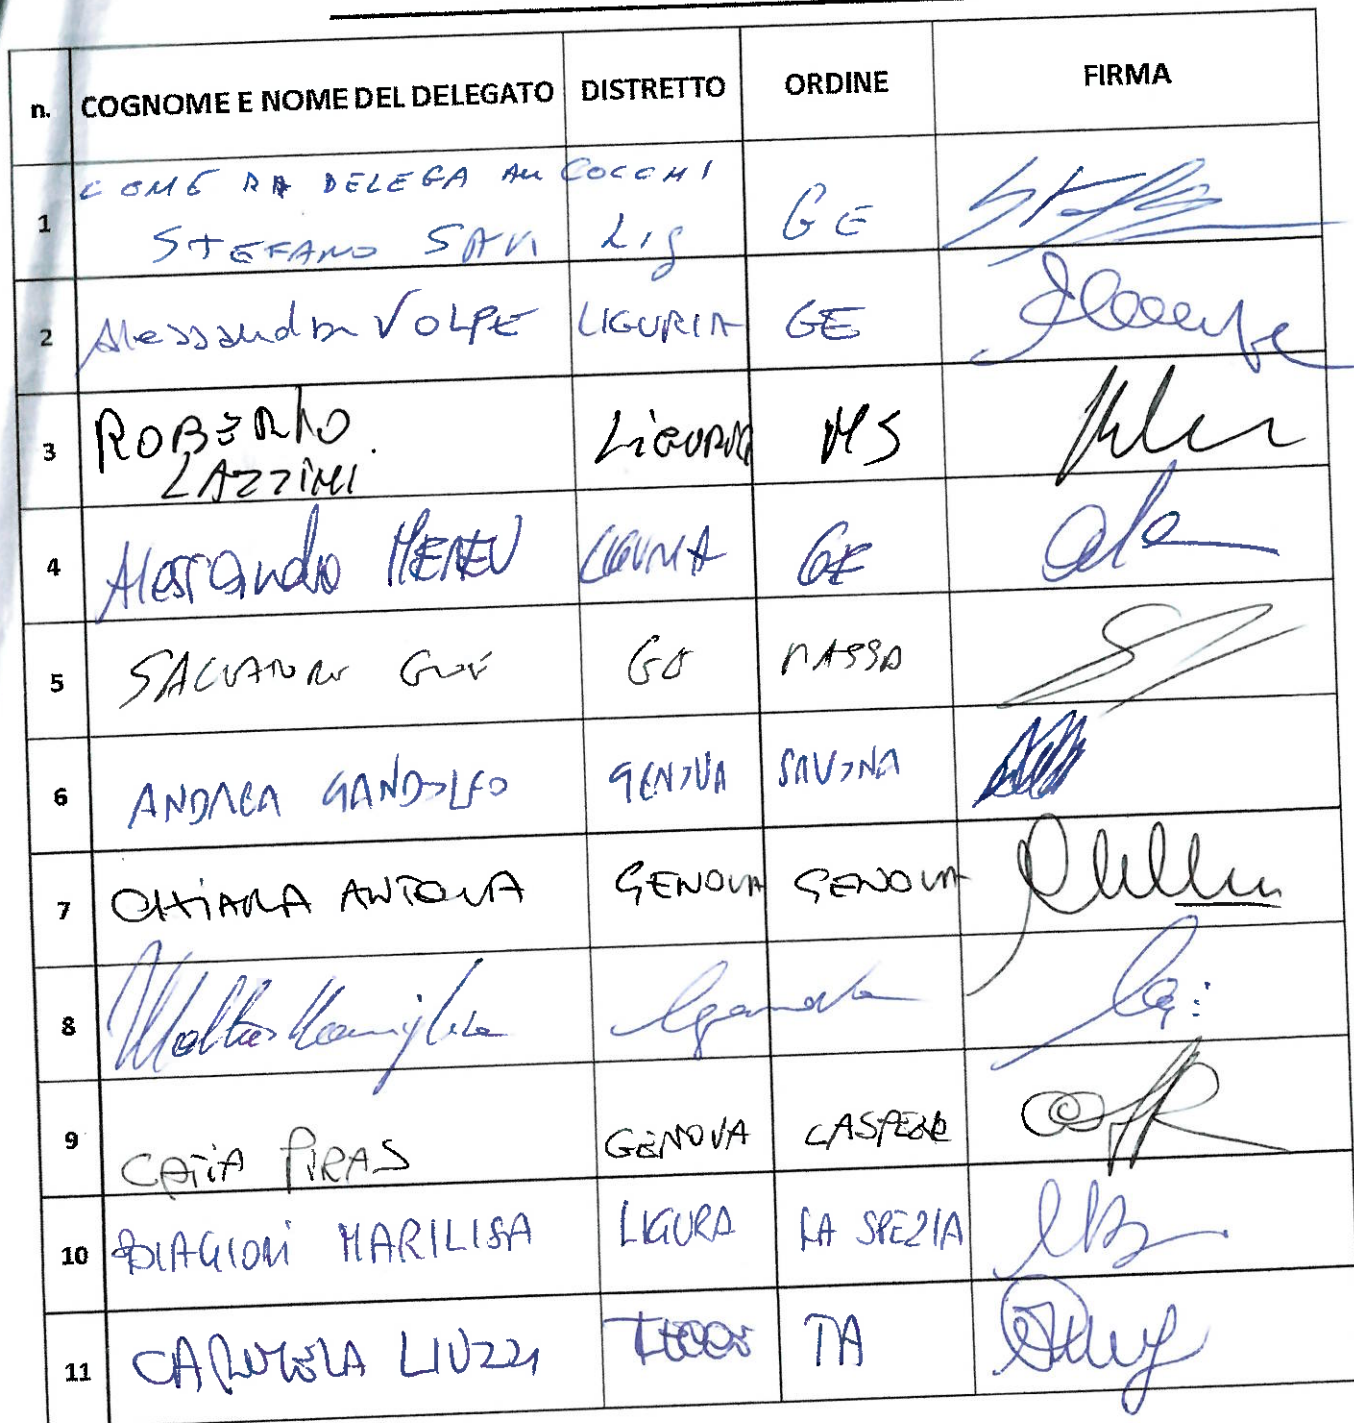 n. COGNOME E NOME DEL DELEGATO DISTRETTO ORDINE FIRMA
COME DA DELEGA COCCHI
1 STEFANO SAVI Lig GE
2 Alessandra VOLPE LIGURIA GE
3 ROBERTO LIGURIA MS
LAZZINI
4 Alessandro LIGURIA GE
5 SALVATORE GE MASSA
6 ANDREA GANDOLFO GENOVA SAVONA
7 CHIARA ANTOLA GENOVA GENOVA
8
9 CATIA PIRAS GENOVA LASPEZIA
10 BIAGIONI MARILISA LIGURA LA SPEZIA
11 LIUZZI TA